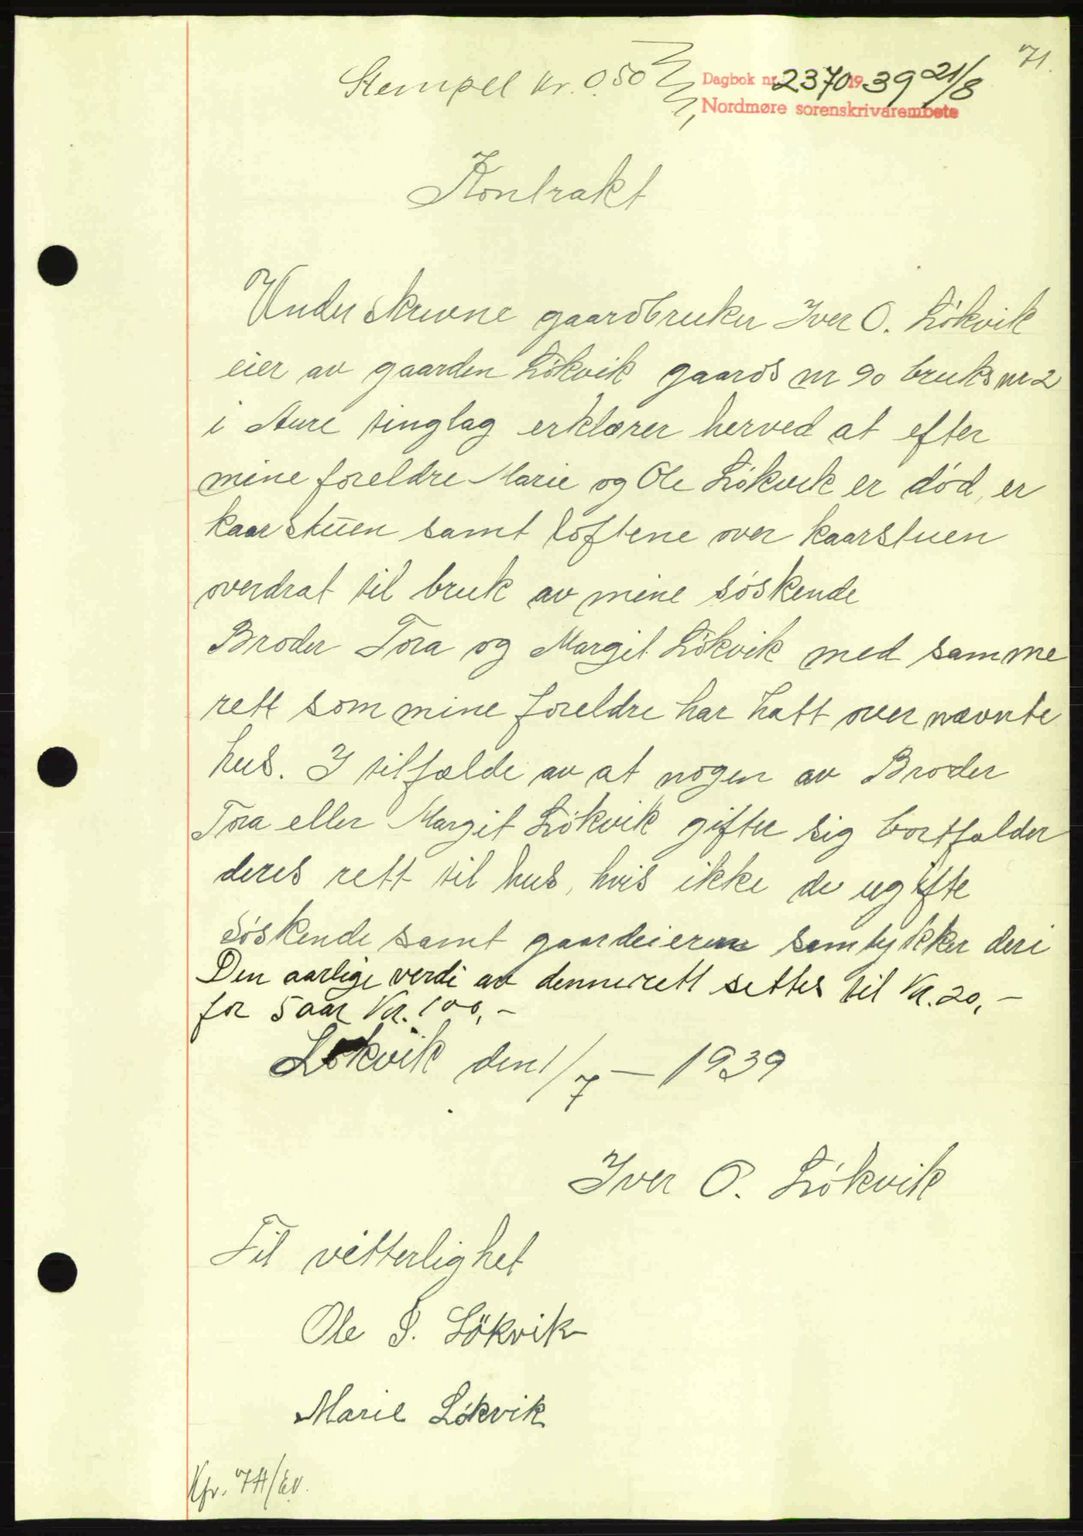 71.
Stempel kr. 0.50
Dagbok nr. 2370 1939 21/8
Nordmøre sorenskrivarembete
Kontrakt
Underskrevne gaardbruker Iver O. Løkvik
eier av gaarden Løkvik gaards nr 90 bruks nr 2
i Aure tinglag erklærer herved at efter
mine foreldre Marie og Ole Løkvik er død, er
kaarstuen samt loftene over kaarstuen
overdrat til bruk av mine søskende
Broder Tora og Margit Løkvik med samme
rett som mine foreldre har hatt over nævnte
hus. I tilfælde av at nogen av Broder
Tora eller Margit Løkvik gifter sig bortfalder
deres rett til hus, hvis ikke de ugifte
søskende samt gaardeieren samtykker deri
Den aarlige verdi av denne rett settes til Kr. 20,-
for 5 aar Kr. 100,-
Løkvik den 1/7 – 1939
Iver O. Løkvik
Til vitterlighet
Ole I. Løkvik
Marie Løkvik
Kfr.